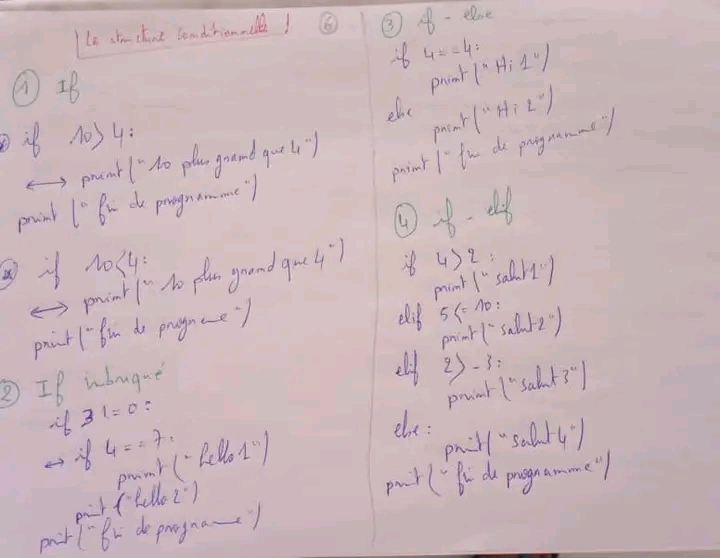 La structure conditionnelle !
6
1 If
if 10>4:
↔ print("10 plus grand que 4")
print ("fin de programme")
if 10<4:
↔ print("10 plus grand que 4")
print("fin de programe")
2 If imbriqué
if 3 != 0:
↔ if 4==7:
print("hello 1")
print("hello2")
print("fin de programe")
3 if - else
if 4==4:
print("Hi 1")
else
print("Hi 2")
print("fin de programme")
4 if - elif
if 4>2:
print("salut1")
elif 5<=10:
print("salut2")
elif 2>-3:
print("salut3")
else:
print("salut4")
print("fin de programme")